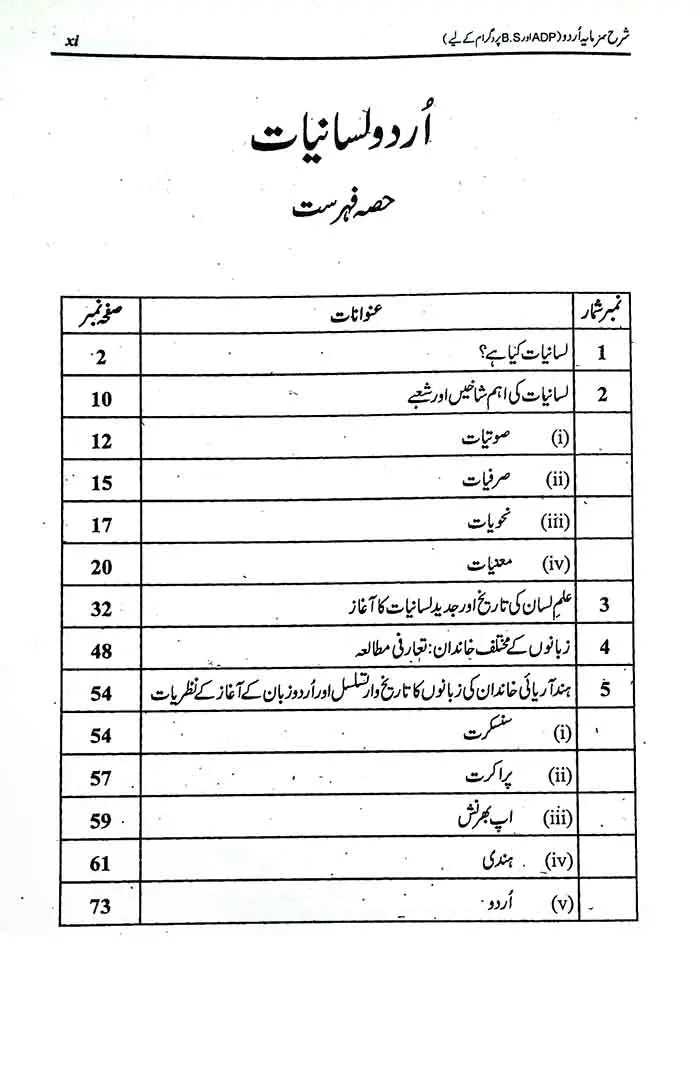 شرح سرمایہ اُردو (ADP اور B.S پروگرام کے لیے) xi
اُردو لسانیات
حصہ فہرست
نمبر شمار عنوانات صفحہ نمبر
1 لسانیات کیا ہے؟ 2
2 لسانیات کی اہم شاخیں اور شعبے 10
(i) صوتیات 12
(ii) صرفیات 15
(iii) نحویات 17
(iv) معنیات 20
3 علمِ لسان کی تاریخ اور جدید لسانیات کا آغاز 32
4 زبانوں کے مختلف خاندان: تعارفی مطالعہ 48
5 ہند آریائی خاندان کی زبانوں کا تاریخ وار تسلسل اور اُردو زبان کے آغاز کے نظریات 54
(i) سنسکرت 54
(ii) پراکرت 57
(iii) اپ بھرنش 59
(iv) ہندی 61
(v) اُردو 73